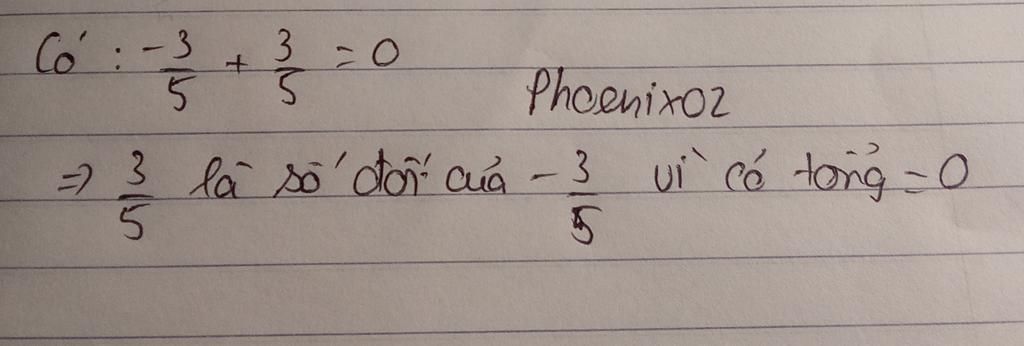 Có : -3/5 + 3/5 = 0
Phoenix02
=> 3/5 là số đối của - 3/5 vì có tổng = 0